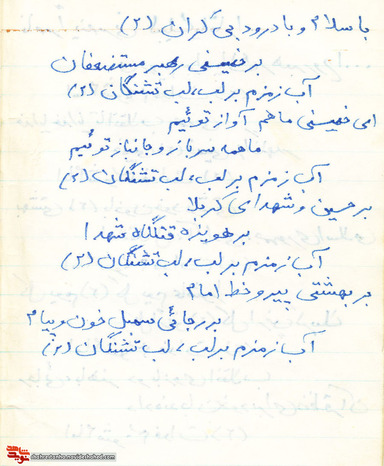 با سلام و با درود بی کران (۲)
بر خمینی رهبر مستضعفان
آب زمزم بر لب، لب تشنگان (۲)
ای خمینی ما هم آواز توئیم
ما همه سرباز و جانباز توئیم
آب زمزم بر لب، لب تشنگان (۲)
بر حسین و شهدای کربلا
بر هویزه قتلگاه شهدا
آب زمزم بر لب، لب تشنگان (۲)
بر بهشتی پیرو خط امام
بر رجائی سمبل خون و پیام
آب زمزم بر لب، لب تشنگان (۲)